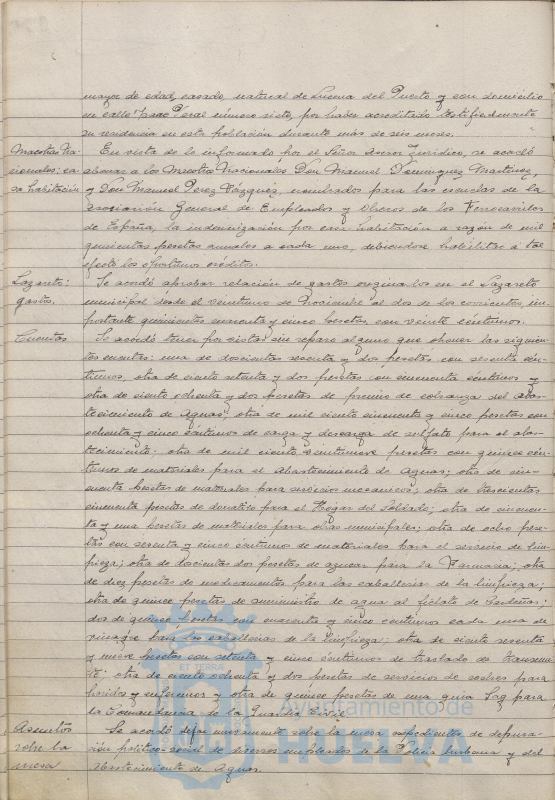 mayor de edad, casado, natural de Lucena del Puerto y con domicilio
en calle Isaac Peral número siete, por haber acreditado testificalmente
su residencia en esta población durante más de seis meses.
Maestros Na-
cionales: ca-
sa habitación
En vista de lo informado por el Señor Asesor Jurídico, se acordó
abonar a los Maestros Nacionales Don Manuel Domínguez Martínez,
y Don Manuel Pérez Vázquez, nombrados para las escuelas de la
Asociación General de Empleados y Obreros de los Ferrocarriles
de España, la indemnización por casa habitación a razón de mil
quinientas pesetas anuales a cada uno, debiéndose habilitar a tal
efecto los oportunos créditos.
Lazareto:
gastos.
Se acordó aprobar relación de gastos originados en el Lazareto
municipal desde el veintiuno de Noviembre al dos de los corrientes, im-
portante quinientas cuarenta y cinco pesetas, con veinte céntimos.
Cuentas
Se acordó tener por vistas sin reparo alguno que oponer las siguien-
tes cuentas: una de doscientas sesenta y dos pesetas, con sesenta cén-
timos, otra de ciento setenta y dos pesetas con cincuenta céntimos y
otra de ciento ochenta y dos pesetas de premio de cobranza del abas-
tecimiento de Aguas; otra de mil ciento cincuenta y cinco pesetas con
ochenta y cinco céntimos de carga y descarga de sulfato para el abas-
tecimiento; otra de mil ciento veintinueve pesetas con quince cén-
timos de materiales para el Abastecimiento de Aguas; otra de cin-
cuenta pesetas de materiales para servicios mecánicos; otra de trescientas
cincuenta pesetas de donativo para el Hogar del Soldado; otra de cincuen-
ta y una pesetas de materiales para obras municipales; otra de ocho pese-
tas con sesenta y cinco céntimos de materiales para el servicio de lim-
pieza; otra de doscientas dos pesetas de azúcar para la Farmacia; otra
de diez pesetas de medicamentos para las caballerías de la limpieza;
otra de quince pesetas de suministro de agua al fielato de Cardeñas;
dos de quince pesetas con cuarenta y cinco céntimos cada una de
vinagre para las caballerías de la limpieza; otra de ciento sesenta
y nueve pesetas con setenta y cinco céntimos de traslado de
otra de ciento ochenta y dos pesetas de servicios de coches para
heridos y enfermos y otra de quince pesetas de una guía Laz para
la Comandancia de la Guardia Civil.
Asuntos
sobre la
mesa
Se acordó dejar nuevamente sobre la mesa expedientes de depura-
ción político-social de diversos empleados de la Policía Urbana y del
Abastecimiento de Aguas.
ET TERRÆ
Ayuntamiento de
HUELVA